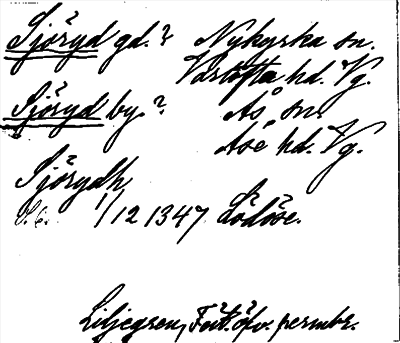 Sjöryd gd.? Nykyrka sn.
Vartofta hd. Vg.
Sjöryd by? Ås sn.
Åse hd. Vg.
Sjörydh
S. d. 1/12 1347 Lödöse.
Liljegren, Fört. öfv. permbr.